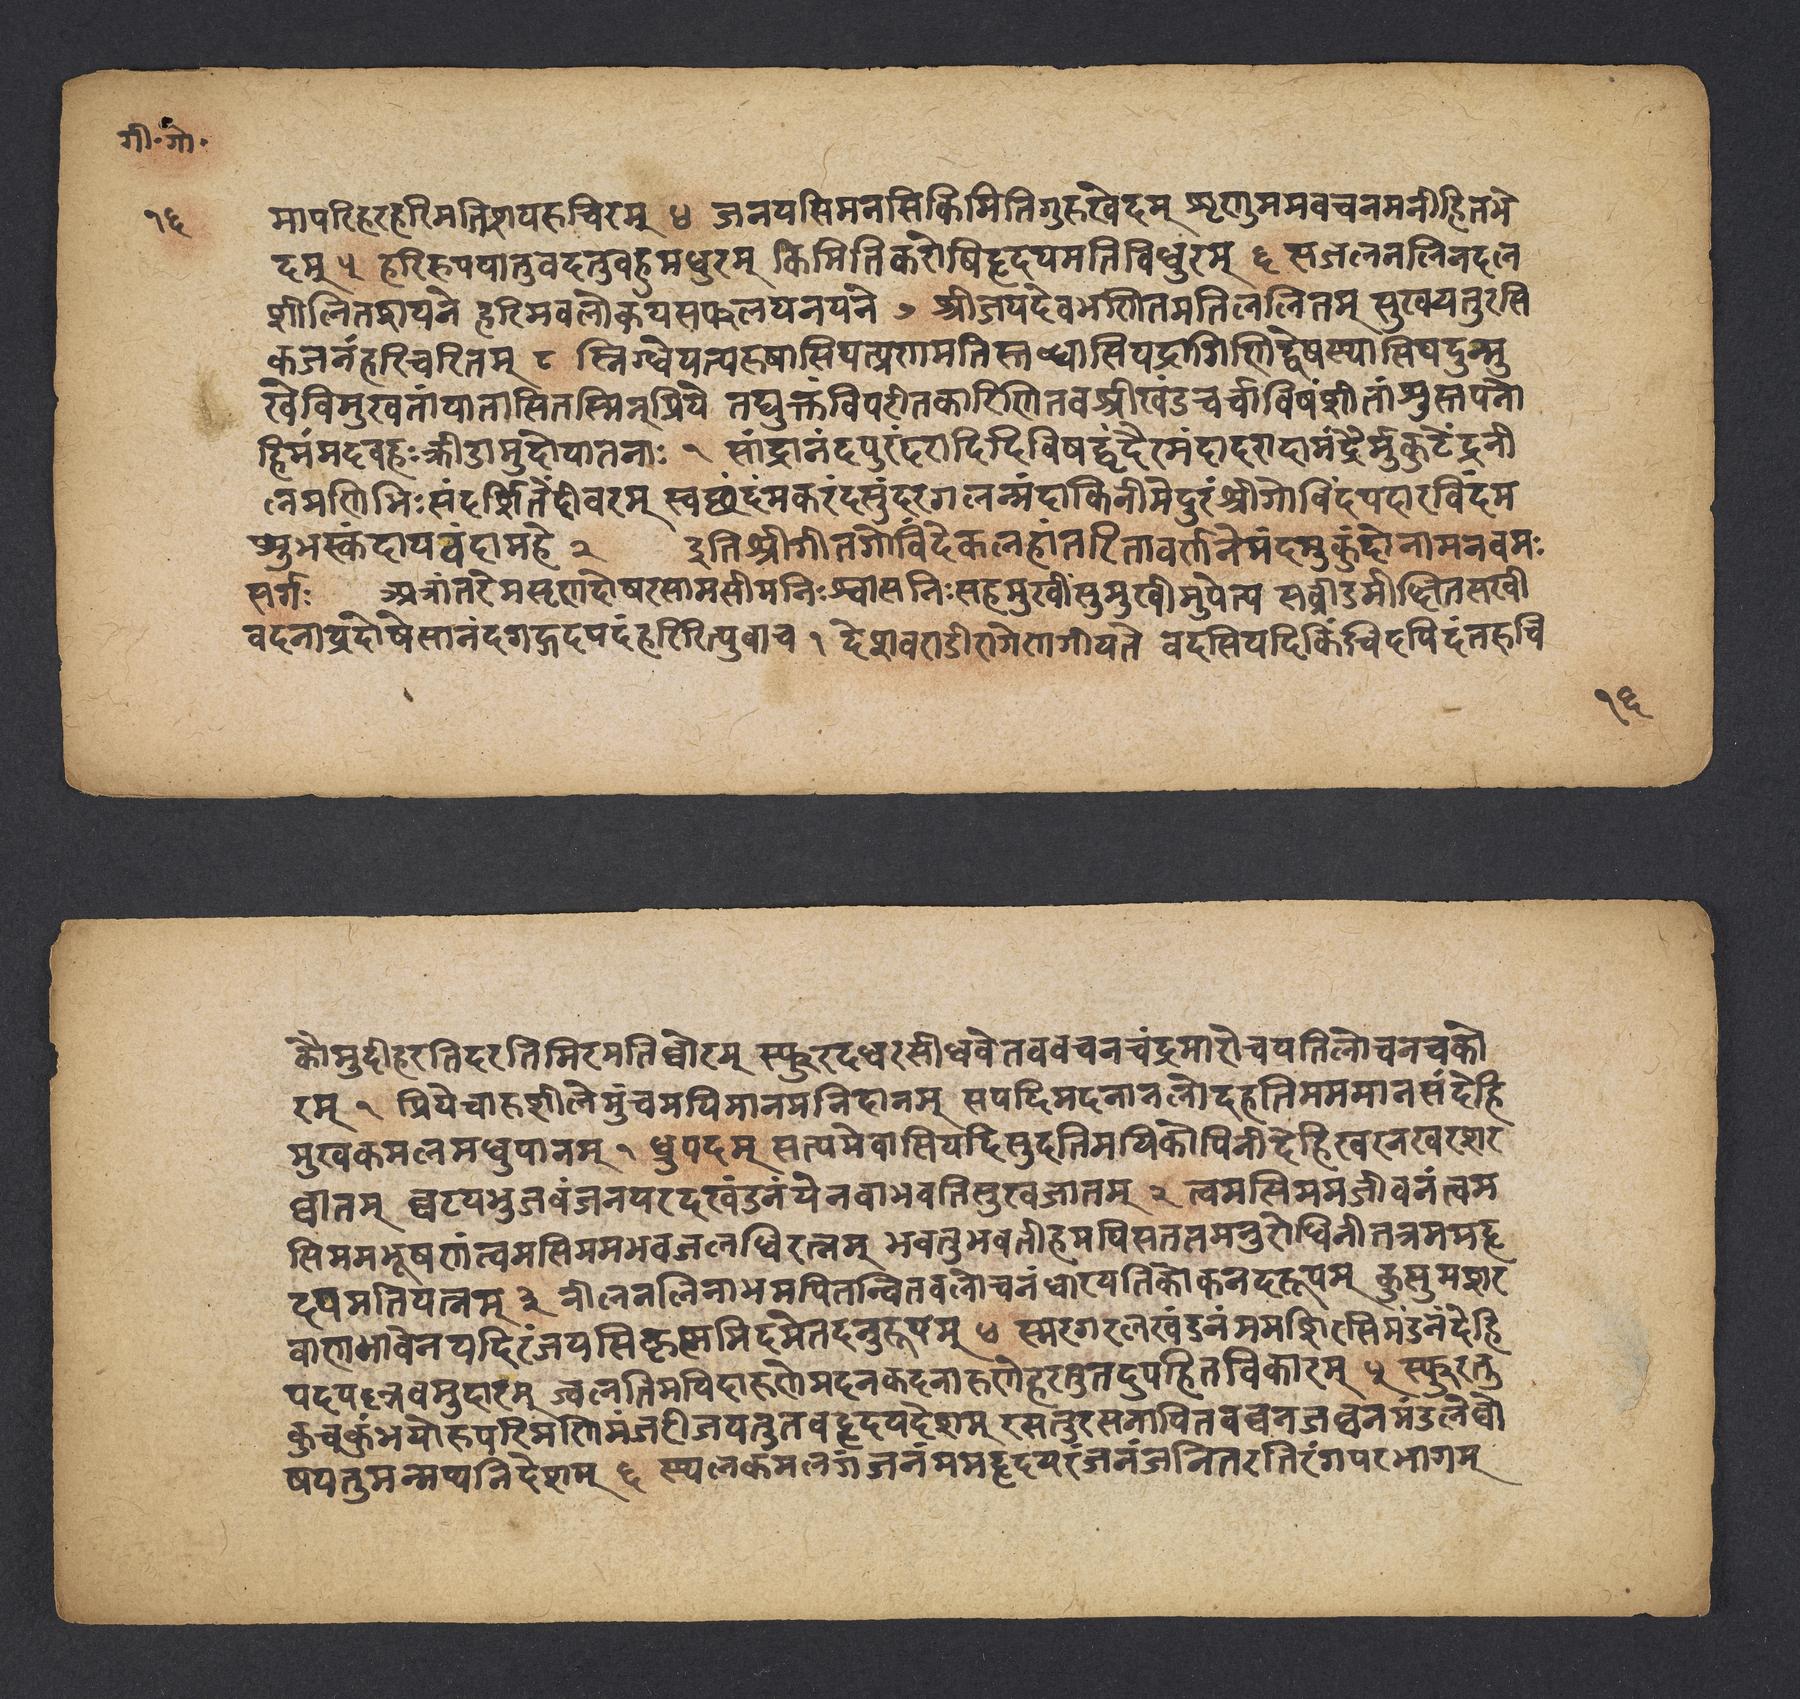 गी॰गो॰
१६
मापरिहरहरिमतिशयरुचिरम् ४ जनयसिमनसिकिमितिगुरुखेदम् शृणुममवचनमनीहितभे
दम् ५ हरिरुपयातुवदतुवहुमधुरम् किमितिकरोषिहृदयमतिविधुरम् ६ सजलनलिनदल
शीलितशयने हरिमवलोकयसफलयनयने ७ श्रीजयदेवभणितमतिललितम् सुखयतुरसि
कजनंहरिचरितम् ८ स्निग्धेयत्परुषासियत्प्रणमतिस्तब्धासियद्रागिणिद्वेषस्यासियदुन्मु
खेविमुखतांयातासितस्मिन्प्रिये तद्युक्तंविपरीतकारिणितवश्रीखंडचर्चाविषंशीतांशुस्तपनो
हिमंमदवहःक्रीडामुदोयातनाः १ सांद्रानंदपुरंदरादिदिविषद्वृंदैरमंदादरादामंद्रैर्मुकुटेंद्रनी
लमणिभिःसंदर्शितेंदीवरम् स्वछंदंमकरंदसुंदरगलन्मंदाकिनीमेदुरंश्रीगोविंदपदारविंदम
शुभस्कंदायवंदामहे २ इतिश्रीगीतगोविंदेकलहांतरितावर्णनेमंदमुकुंदोनामनवमः
सर्गः अत्रांतरेमसृणदोषरसामसीमनिःश्वासनिःसहमुखींसुमुखीमुपेत्य सव्रीडमीक्षितसखी
वदनांप्रदोषेसानंदगद्गदपदंहरिरित्युवाच १ देशवराडीरागेणगीयते वदसियदिकिंचिदपिदंतरुचि
१६
कौमुदीहरतिदरतिमिरमतिघोरम् स्फुरदधरसीधवेतववचनचंद्रमारोचयतिलोचनचको
रम् १ प्रियेचारुशीलेमुंचमयिमानमनिदानम् सपदिमदनानलोदहतिमममानसंदेहि
मुखकमलमधुपानम् १ ध्रुपदम् सत्यमेवासियदिसुदतिमयिकोपिनीदेहिखरनखरशर
घातम् घटयभुजवंजनयरदखंडनंयेनवाभवतिसुखजातम् २ त्वमसिममजीवनंत्वम
सिममभूषणंत्वमसिममभवजलधिरत्नम् भवतुभवतीहमयिसततमनुरोधिनीतत्रममहृ
दयमतियत्नम् ३ नीलनलिनाभमपितन्वितवलोचनंधारयतिकोकनदरूपम् कुसुमशर
वाणभावेनयदिरंजयसिकृष्णमिदमेतदनुरूपम् ४ स्मरगरलखंडनंममशिरसिमंडनंदेहि
पदपल्लवमुदारम् ज्वलतिमयिदारुणोमदनकदनारुणोहरतुतदुपहितविकारम् ५ स्फुरतु
कुचकुंभयोरुपरिमणिमंजरीजयतुतवहृदयदेशम् रसतुरसनापितवघनजघनमंडलेघो
षयतुमन्मथनिदेशम् ६ स्थलकमलगंजनंममहृदयरंजनंजनितरतिरंगपरभागम्